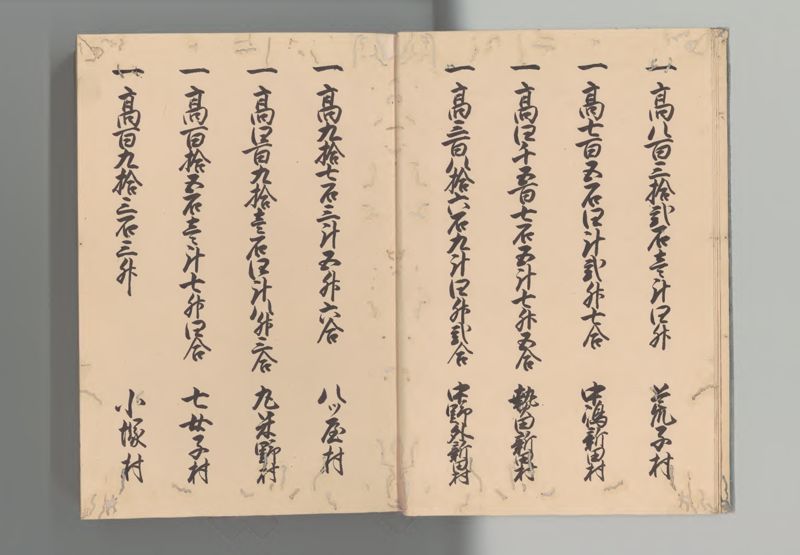 一 高八百三拾弐石壱斗四升 荒子村
一 高七百五石四斗弐升七合 中嶋新田村
一 高四千五百七石五斗七升五合 熱田新田村
一 高三百八拾六石九斗四升弐合 中野外新田村
一 高九拾七石三斗五升六合 八ツ屋村
一 高四百九拾壱石四斗八升三合 九米野村
一 高百拾五石壱斗七升四合 七女子村
一 高百九拾三石三升 小塚村